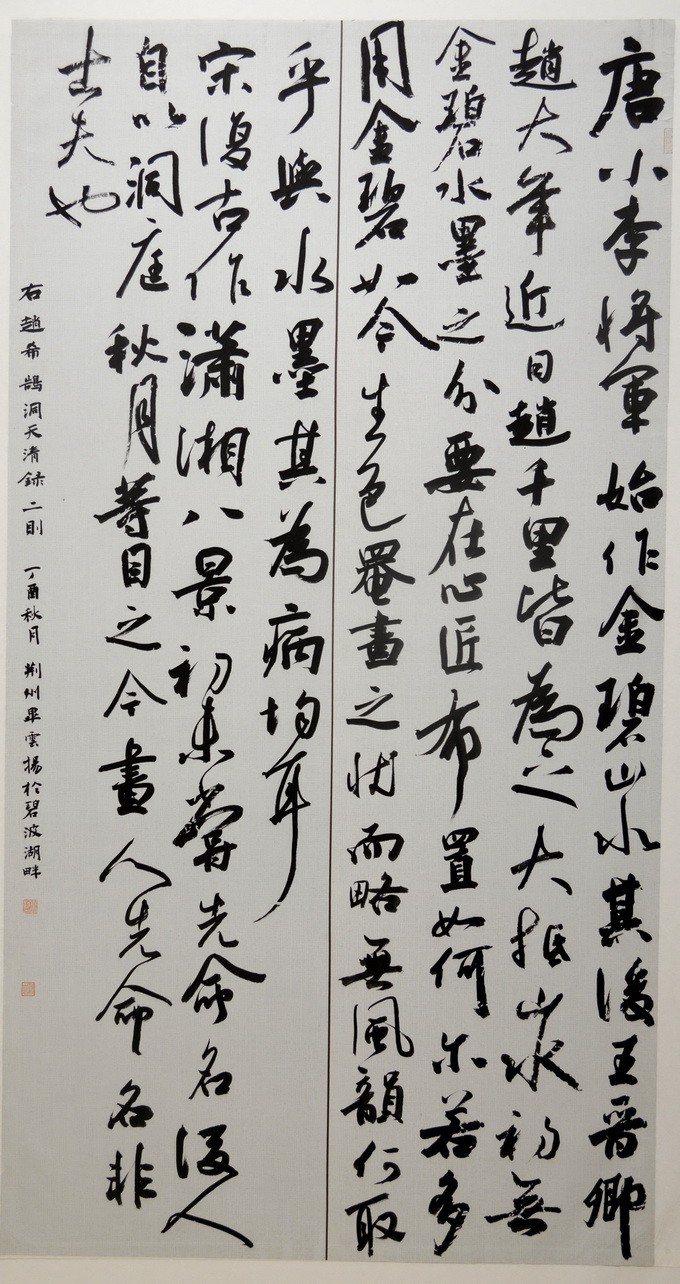 唐小李將軍始作金碧山水其後王晉卿
趙大年近日趙千里皆為之大抵山水初無
金碧水墨之分要在心匠布置如何尔若多
用金碧如今生色罨畫之狀而略無風韻何取
乎與水墨其為病均耳
宋復古作瀟湘八景初未嘗先命名後人
自以洞庭秋月等目之今畫人先命名非
士夫也
右趙希鵠洞天清録二則 丁酉秋月 荆州畢雲揚於碧波湖畔